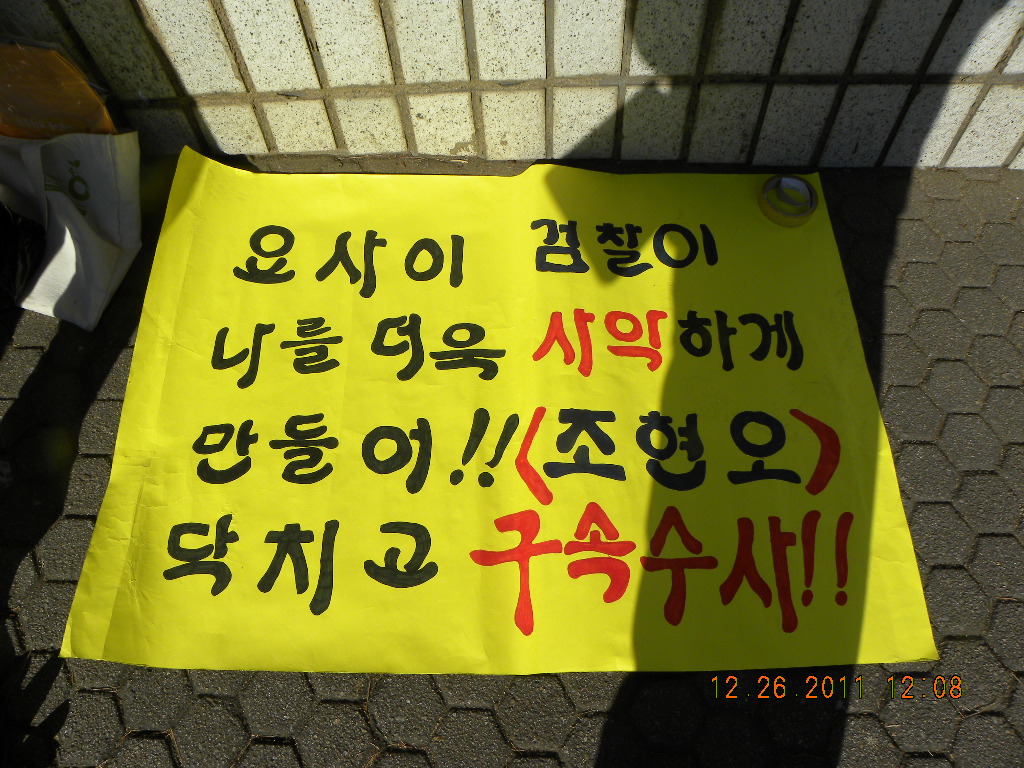 요사이 검찰이
나를 더욱 사악하게
만들어!! (조현오)
닥치고 구속수사!!
12.26.2011 12:08